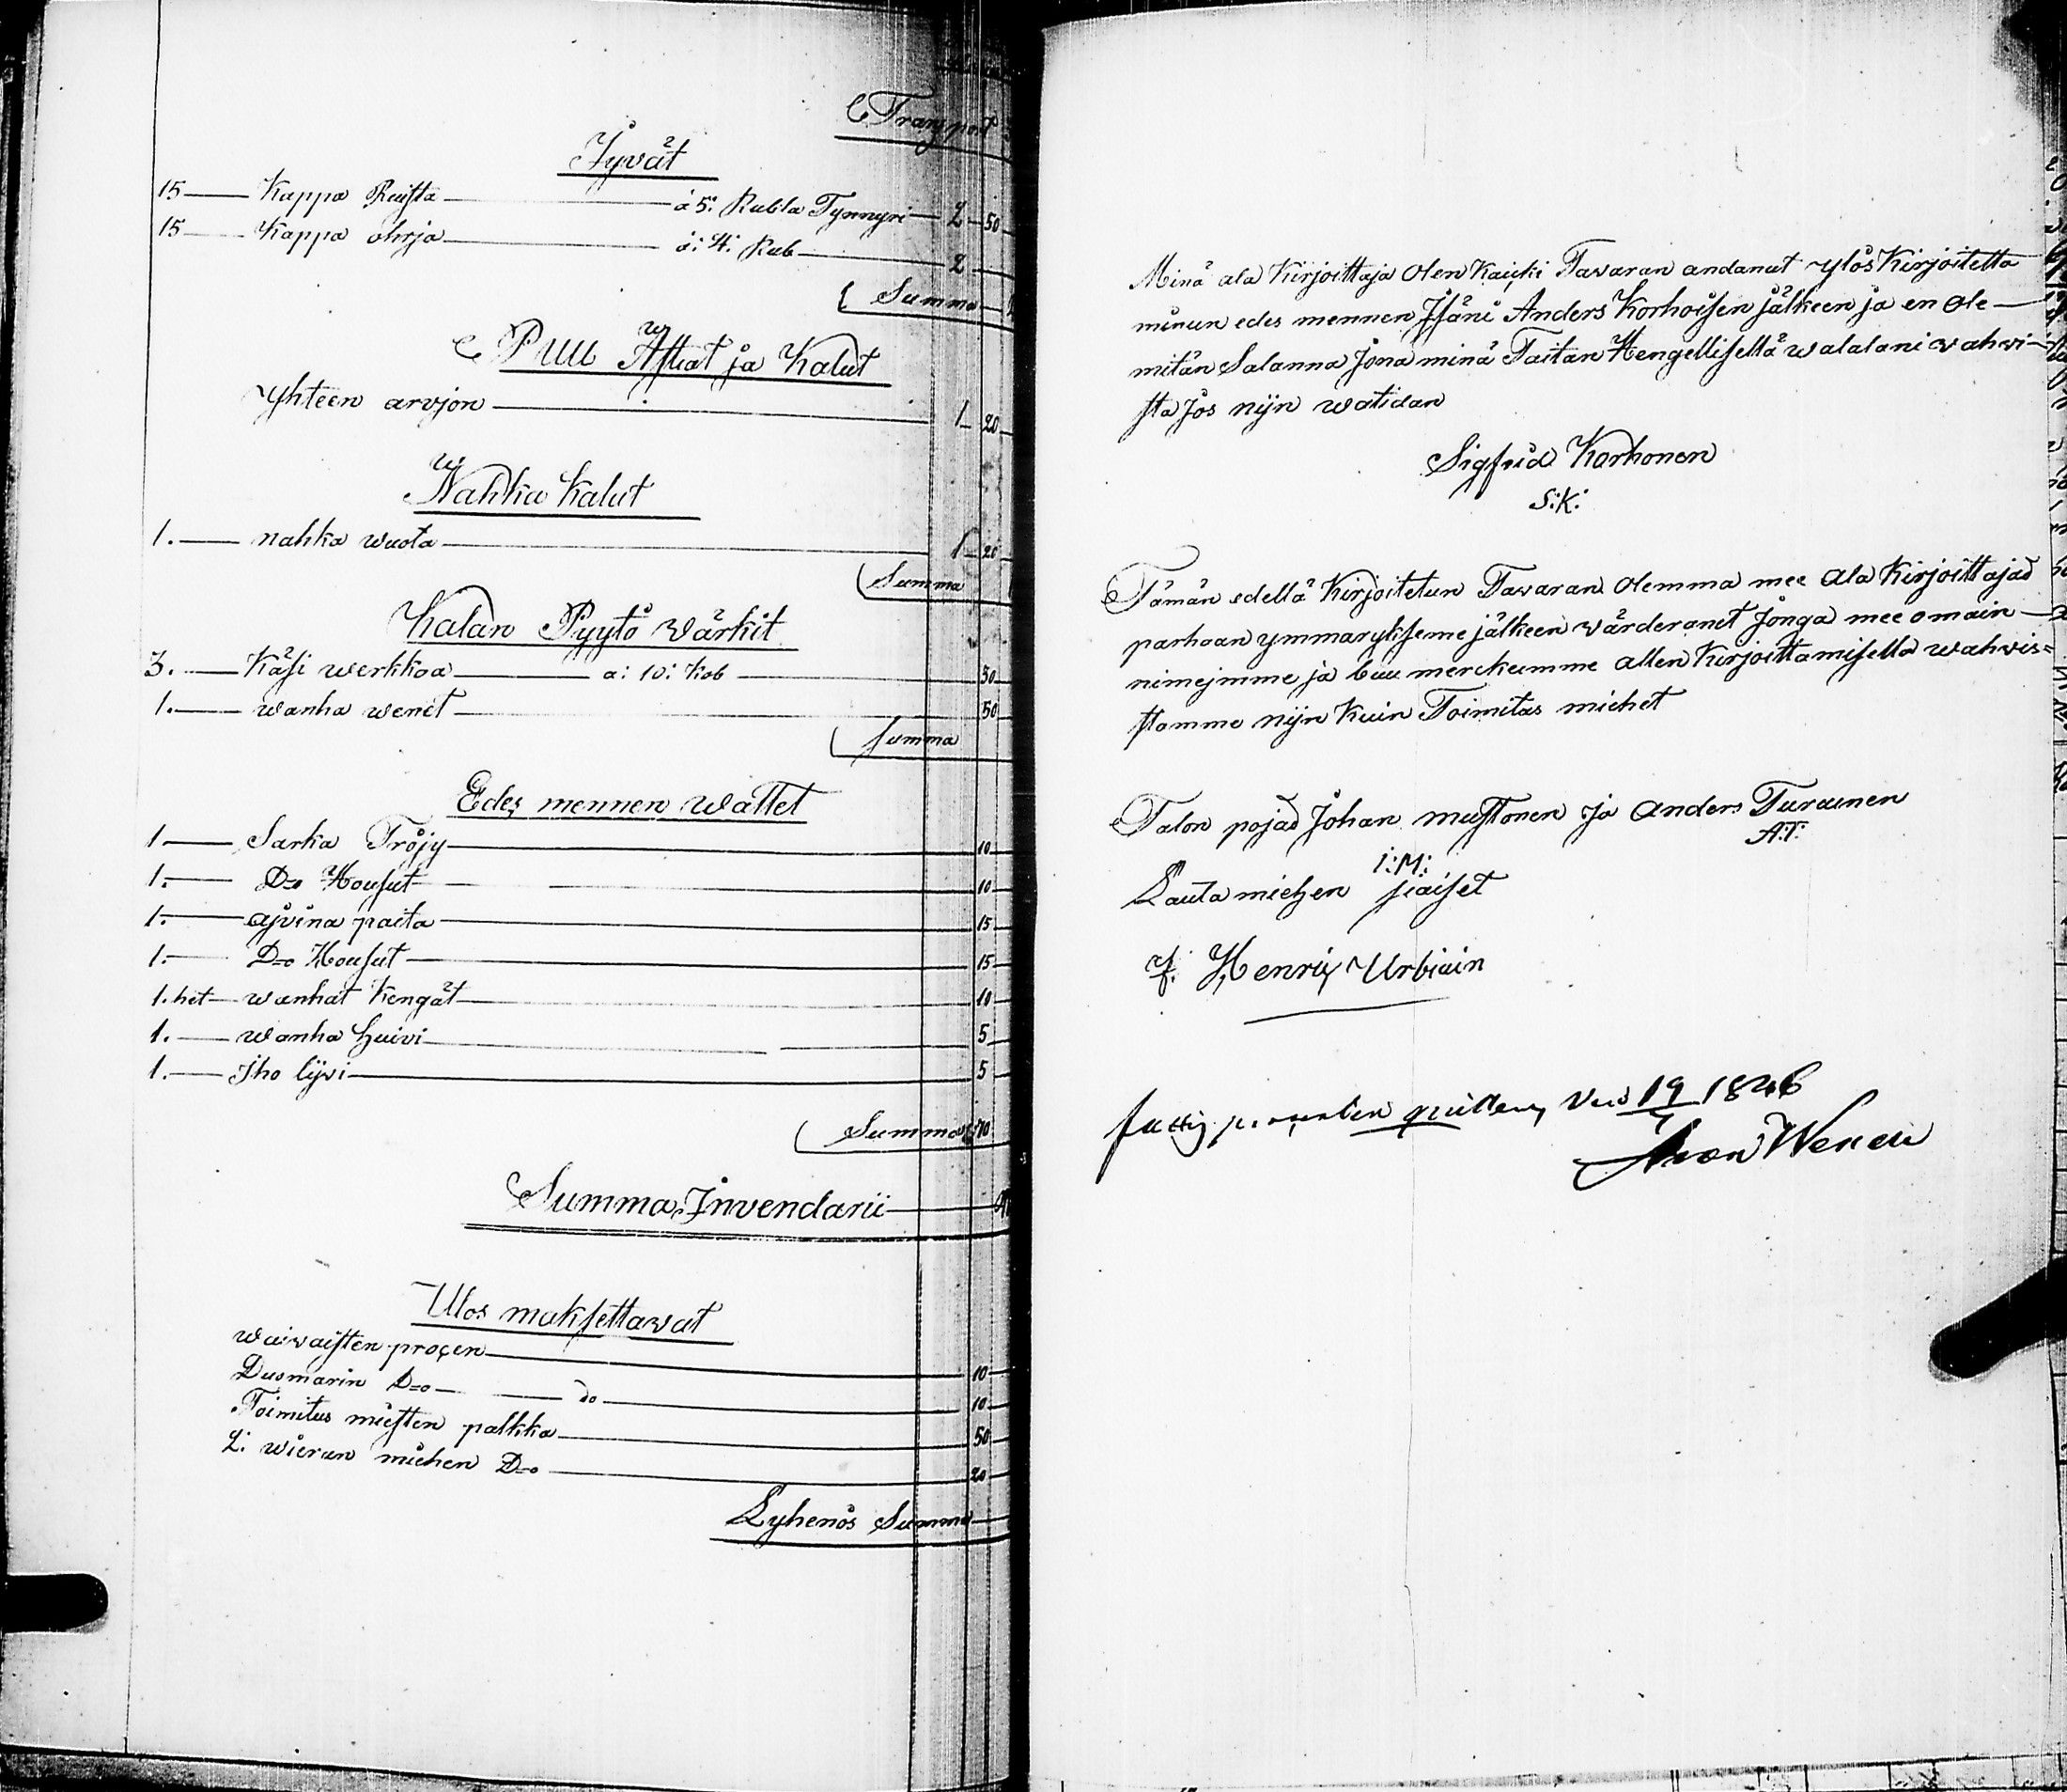 Transport
Jyvät
15 — Kappa Ruista — á 5: Rubla Tynnyri — 2 — 50
15 — Kappa ohrja — á: 4: Rub — 2 —
Summa
Puu Astiat ja Kalut
Yhteen arvjon — 1 — 20
Nahka Kalut
1. — nahka wuota — 1 — 20
Summa
Kalan Pyytö wärkit
3. — Käsi werkkoa — a: 10: Kob — 30
1. — wanha wenet — 50
Summa
Edes mennen wattet
1 — Sarka Tröjy — 10
1. — D=o Housut — 10
1. — ajvina paita — 15
1. — D=o Housut — 15
1. het — wanhat Kengät — 10
1. — wanha huivi — 5
1. — Jho lijvi — 5
Summa 70
Summa Invendarii
Ulos maksettawat
waivaisten proçen — 10
Duomarin D=o — do — 10
Toimitus miesten palkka — 50
2: wieran miehen D=o — 20
Lyhenös Summa
Minä ala Kirjoittaja olen Kaicki Tavaran andanut ylös Kirjoitetta
minun edes mennen Jsäni Anders Korhoisen jälkeen ja en ole
mitän Salanna Jona minä Taitan Hengellisellä walalani wahvi-
sta Jos nijn watidan
Sigfrid Korhonen
S:K:
Tämän edellä Kirjoitetun Tavaran olemma mee ala Kirjoittajad
parhaan ymmarykseme jälkeen wärderanet Jonga mee omain
nimejmme ja buu merckumme allen Kirjoittamisella wahvis=
stamme nijn Kuin Toimitas miehet
Talon pojad Johan mustonen ja anders Turunen
I:M: A:T:
Lauta miehen siaiset
Henrix Urbiain
19 1846